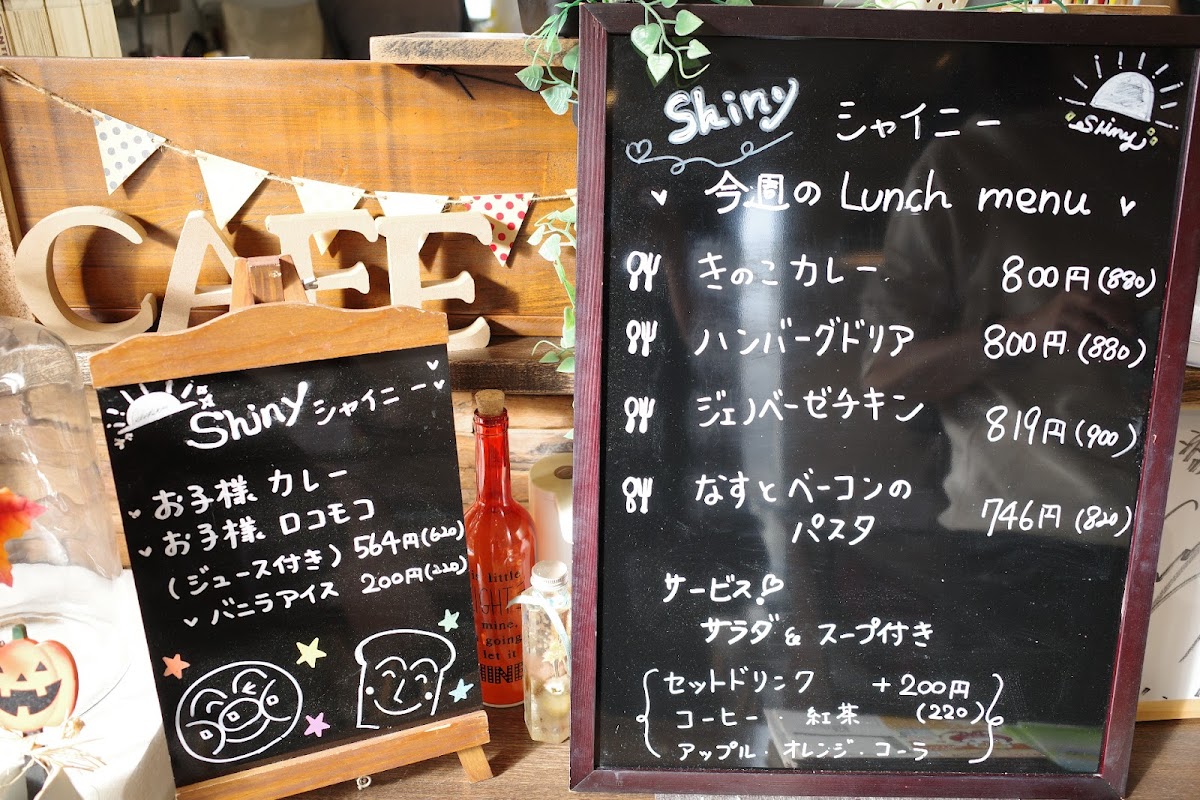 CAFE
Shiny シャイニー
お子様 カレー
お子様 ロコモコ
(ジュース付き) 564円(620)
バニラアイス 200円(220)
Shiny シャイニー
Shiny
今週の Lunch menu
きのこカレー 800円(880)
ハンバーグドリア 800円(880)
ジェノベーゼチキン 819円(900)
なすとベーコンの
パスタ 746円(820)
サービス!
サラダ & スープ付き
セットドリンク +200円
コーヒー・紅茶 (220)
アップル・オレンジ・コーラ
little
mine.
going
let it